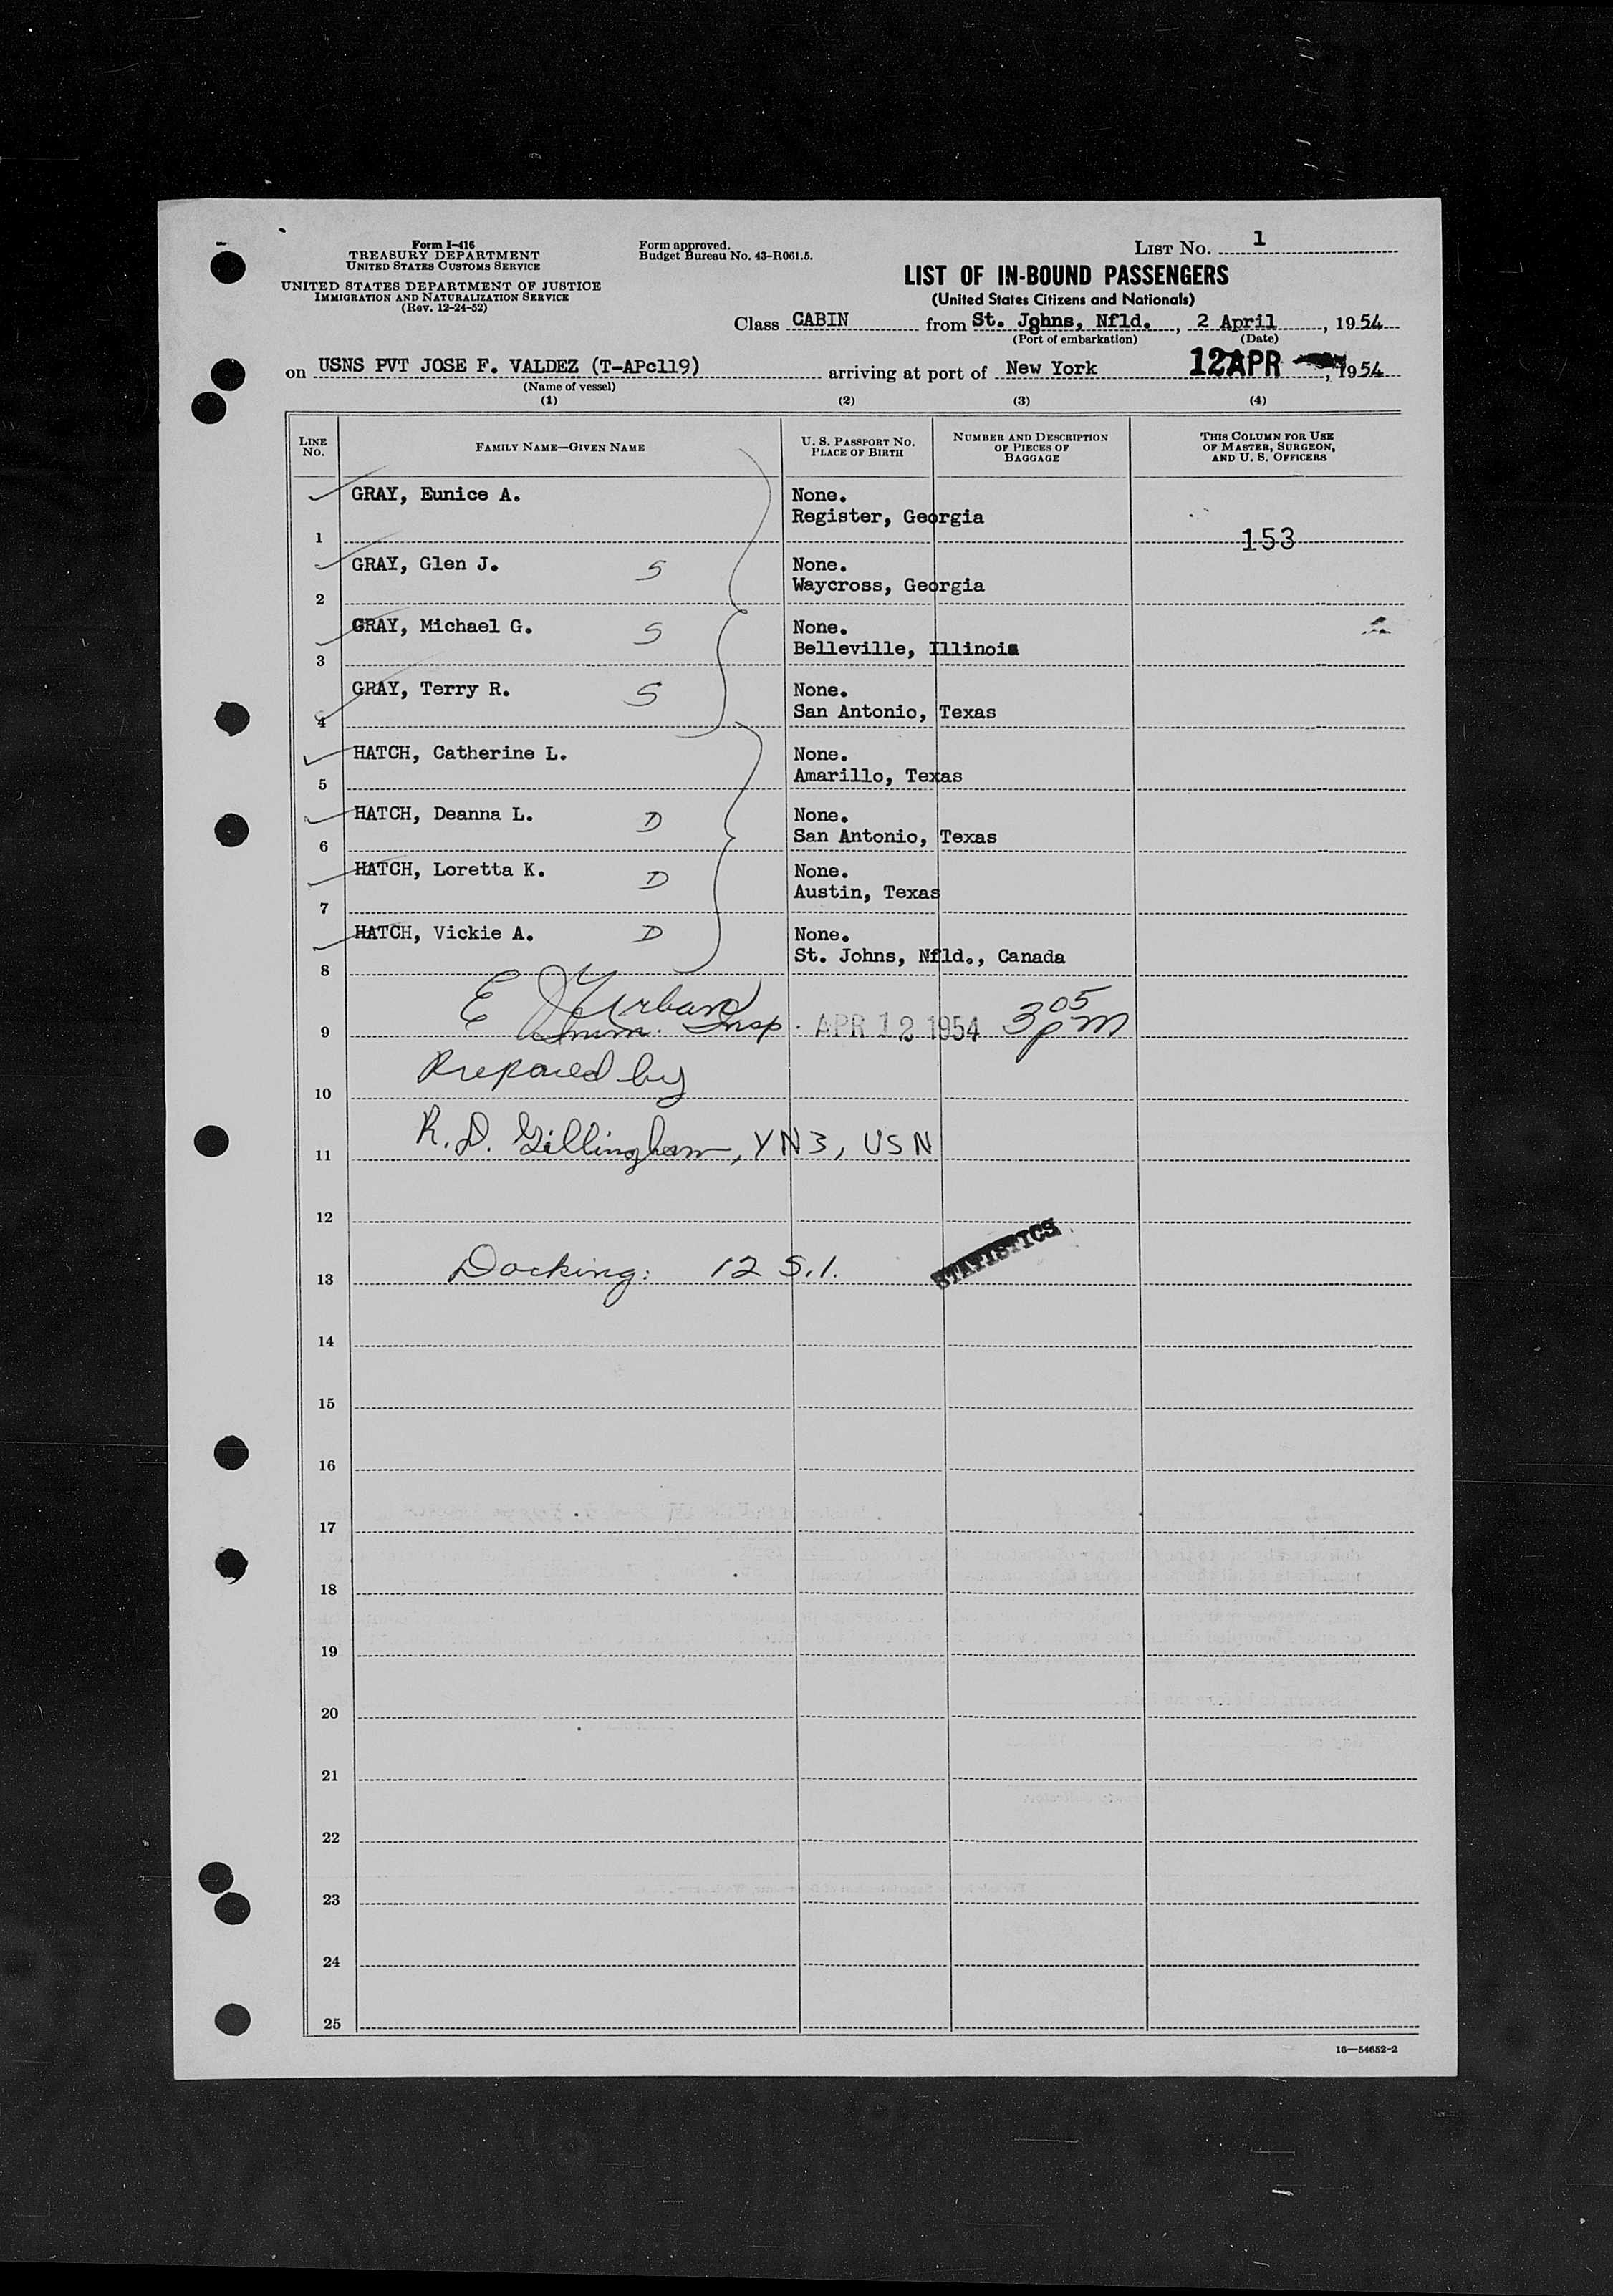 Form I-416
TREASURY DEPARTMENT
UNITED STATES CUSTOMS SERVICE
UNITED STATES DEPARTMENT OF JUSTICE
IMMIGRATION AND NATURALIZATION SERVICE
(Rev. 12-24-52)
Form approved.
Budget Bureau No. 43-R061.5.
LIST NO. 1
LIST OF IN-BOUND PASSENGERS
(United States Citizens and Nationals)
Class CABIN from St. Johns, Nfld., 2 April, 1954
(Port of embarkation) (Date)
on USNS PVT JOSE F. VALDEZ (T-APc119) arriving at port of New York 12 APR, 1954
(Name of vessel)
(1) (2) (3) (4)
LINE NO. FAMILY NAME—GIVEN NAME U. S. PASSPORT NO. PLACE OF BIRTH NUMBER AND DESCRIPTION OF PIECES OF BAGGAGE THIS COLUMN FOR USE OF MASTER, SURGEON, AND U. S. OFFICERS
GRAY, Eunice A. None.
Register, Georgia
1 153
GRAY, Glen J. S None.
Waycross, Georgia
2
GRAY, Michael G. S None.
Belleville, Illinois
3
GRAY, Terry R. S None.
San Antonio, Texas
4
HATCH, Catherine L. None.
Amarillo, Texas
5
HATCH, Deanna L. D None.
San Antonio, Texas
6
HATCH, Loretta K. D None.
Austin, Texas
7
HATCH, Vickie A. D None.
St. Johns, Nfld., Canada
8
E J Urban
9 Imm. Insp. APR 12 1954 3 05 pm
Prepared by
10
R. D. Gillingham, YN3, USN
11
12
STATISTICS
13 Docking: 12 S.I.
14
15
16
17
18
19
20
21
22
23
24
25
16—54652-2